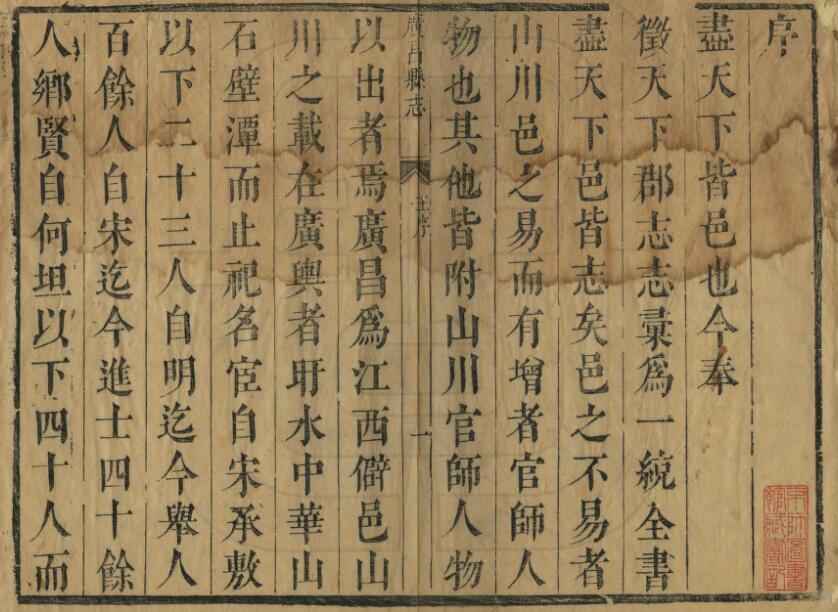 序
盡天下皆邑也今奉
徵天下郡志志彙爲一統全書
盡天下邑皆志矣邑之不易者
山川邑之易而有增者官師人
物也其他皆附山川官師人物
廣昌縣志
序
一
以出者焉廣昌爲江西僻邑山
川之載在廣輿者盱水中華山
石壁潭而止祀名宦自宋承敷
以下二十三人自明迄今舉人
百餘人自宋迄今進士四十餘
人鄉賢自何坦以下四十人而